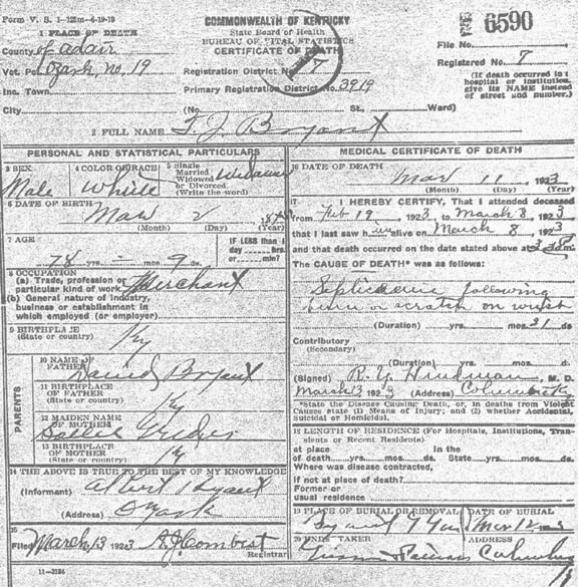 Form V. S. 1-125m-4-19-19
COMMONWEALTH OF KENTUCKY
State Board of Health
BUREAU OF VITAL STATISTICS
CERTIFICATE OF DEATH
1923 6590
1 PLACE OF DEATH
County of Adair
Vot. Pct. Ozark, No. 19
Inc. Town
City
Registration District No. 17
Primary Registration District No. 3919
(No. St., Ward)
File No.
Registered No. 7
(If death occurred in a
hospital or institution,
give its NAME instead
of street and number.)
2 FULL NAME T. J. Bryant
PERSONAL AND STATISTICAL PARTICULARS
3 SEX
Male
4 COLOR OR RACE
White
5 Single
Married
Widowed
or Divorced
(Write the word)
Widower
6 DATE OF BIRTH
Mar 2
(Month) (Day) (Year)
7 AGE
78 yrs. - mos. 9 ds.
IF LESS than 1
day hrs.
or min.?
8 OCCUPATION
(a) Trade, profession or
particular kind of work Merchant
(b) General nature of industry,
business or establishment in
which employed (or employer)
9 BIRTHPLACE
(State or country) Ky
PARENTS
10 NAME OF
FATHER David Bryant
11 BIRTHPLACE
OF FATHER
(State or country) Ky
12 MAIDEN NAME
OF MOTHER
13 BIRTHPLACE
OF MOTHER
(State or country) Ky
14 THE ABOVE IS TRUE TO THE BEST OF MY KNOWLEDGE
(Informant) Albert Bryant
(Address) Ozark
15
Filed March 13 1923 Combest
Registrar
11-3184
MEDICAL CERTIFICATE OF DEATH
16 DATE OF DEATH
Mar 11, 1923
(Month) (Day) (Year)
17 I HEREBY CERTIFY, That I attended deceased
from Feb 19, 1923, to March 8, 1923,
that I last saw him alive on March 8, 1923,
and that death occurred on the date stated above at m.
The CAUSE OF DEATH* was as follows:
Septicemia following
burn or scratch on wrist
(Duration) yrs. mos. 31 ds.
Contributory
(Secondary)
(Duration) yrs. mos. d.
(Signed) R. Y. Hindman, M. D.
March 13 1923 (Address) Columbia Ky
*State the Disease Causing Death, or, in deaths from Violent
Causes state (1) Means of Injury; and (2) whether Accidental,
Suicidal or Homicidal.
18 LENGTH OF RESIDENCE (For Hospitals, Institutions, Tran-
sients or Recent Residents)
at place In the
of death yrs. mos. ds. State yrs. mos. ds.
Where was disease contracted,
if not at place of death?
Former or
usual residence
19 PLACE OF BURIAL OR REMOVAL DATE OF BURIAL
Bryant Mar 12
20 UNDERTAKER ADDRESS
Columbia